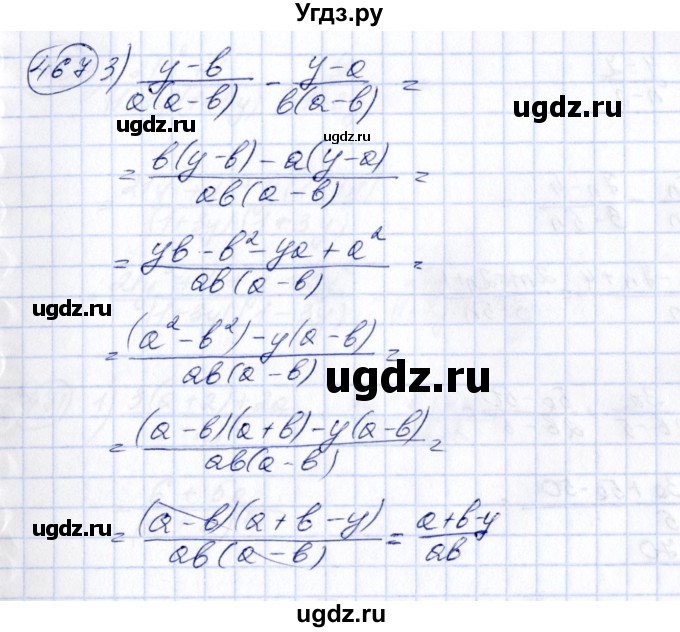 Угдз.ру
467 3) (y-b)/(a(a-b)) - (y-a)/(b(a-b)) =
ugdz.ru ugdz.ru ugdz.ru
= (b(y-b)-a(y-a))/(ab(a-b)) =
= (yb-b²-ya+a²)/(ab(a-b)) =
ugdz.ru
= ((a²-b²)-y(a-b))/(ab(a-b)) =
ugdz.ru
= ((a-b)(a+b)-y(a-b))/(ab(a-b)) =
= ((a-b)(a+b-y))/(ab(a-b)) = (a+b-y)/(ab)
ugdz.ru ugdz.ru
ugdz.ru